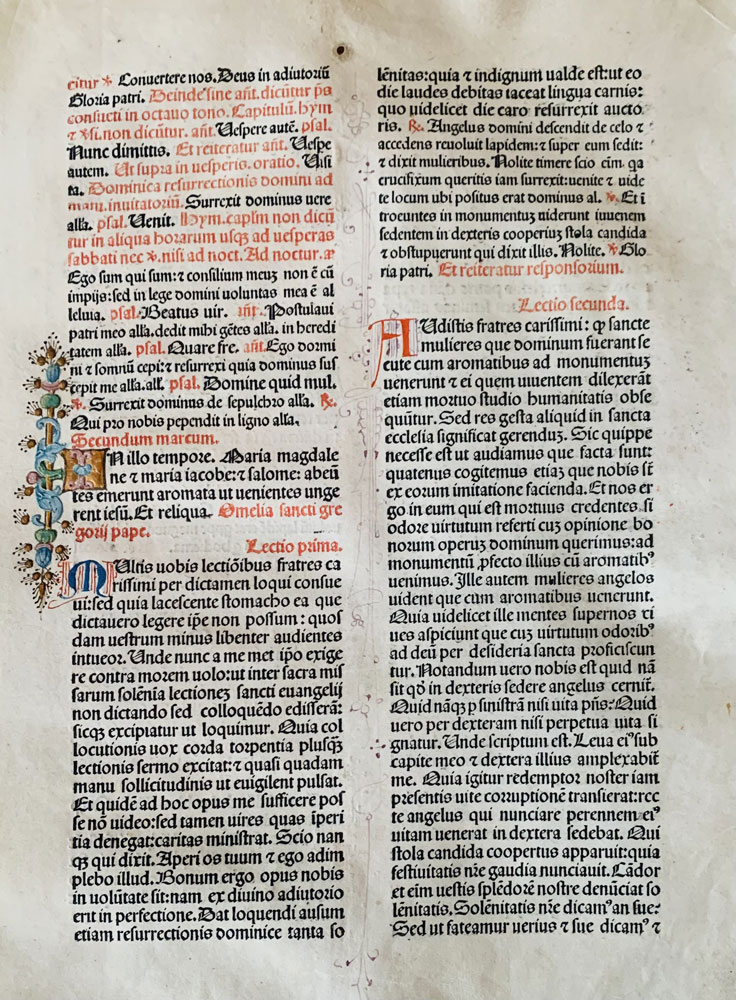 citur ※ Conuertere nos. Deus in adiutoriū
Gloria patri. Deinde sine añt. dicūtur ps̄
consueti in octauo tono. Capitulū. hym̄
⁊ ℣si. non dicūtur. añt. Uespere autē. psal.
Nunc dimittis. Et reiteratur añt. Uespe
autem. Ut supra in uesperis. oratio. Uisi
ta. Dominica resurrectionis domini ad
matu. inuitatoriū. Surrexit dominus uere
alla. psal. Uenit. Hym. caplm̄ non dicū
tur in aliqua horarum usqꝫ ad uesperas
sabbati nec ℣. nisi ad noct. Ad noctur. añ
Ego sum qui sum: ⁊ consilium meuꝫ non ē cū
impijs: sed in lege domini uoluntas mea ē al
leluia. psal. Beatus uir. añt. Postulaui
patri meo alla. dedit mihi gētes alla. in heredi
tatem alla. psal. Quare fre. añt. Ego dormi
ni ⁊ somnū cepi: ⁊ resurrexi quia dominus sus
cepit me alla. all. psal. Domine quid mul.
℣. Surrexit dominus de sepulchro alla. ℞.
Qui pro nobis pependit in ligno alla.
Secundum marcum.
IN illo tempore. Maria magdale
ne ⁊ maria iacobe: ⁊ salome: abeū
tes emerunt aromata ut uenientes unge
rent iesū. Et reliqua. Omelia sancti gre
gorij pape.
Lectio prima.
MUltis uobis lectiōibus fratres ca
rissimi per dictamen loqui consue
ui: sed quia lacescente stomacho ea que
dictauero legere ip̄e non possum: quos
dam uestrum minus libenter audientes
intueor. Unde nunc a me met ip̄o exige
re contra morem uolo: ut inter sacra mis
sarum solēnia lectioneꝫ sancti euangelij
non dictando sed colloquēdo edisserā:
sicqꝫ excipiatur ut loquimur. Quia col
locutionis uox corda torpentia plusqꝫ̄
lectionis sermo excitat: ⁊ quasi quadam
manu sollicitudinis ut euigilent pulsat.
Et quidē ad hoc opus me sufficere pos
se nō uideo: sed tamen uires quas iperi
tia denegat: caritas ministrat. Scio nan
qꝫ qui dixit. Aperi os tuum ⁊ ego adim
plebo illud. Bonum ergo opus nobis
in uolūtate sit: nam ex diuino adiutorio
erit in perfectione. Dat loquendi ausum
etiam resurrectionis dominice tanta so
lēnitas: quia ⁊ indignum ualde est: ut eo
die laudes debitas taceat lingua carnis:
quo uidelicet die caro resurrexit aucto
ris. ℞. Angelus domini descendit de celo ⁊
accedens reuoluit lapidem: ⁊ super eum sedit:
⁊ dixit mulieribus. Nolite timere scio eīm. qa
crucifixum queritis iam surrexit: uenite ⁊ uide
te locum ubi positus erat dominus al. ℣. Et ī
troeuntes in monumentuꝫ uiderunt iuuenem
sedentem in dexteris cooperiuꝫ stola candida
⁊ obstupuerunt qui dixit illis. Nolite. ℣ Glo
ria patri. Et reiteratur responsorium.
Lectio secunda.
AUdistis fratres carissimi: ꝙ sancte
mulieres que dominum fuerant se
cute cum aromatibus ad monumentuꝫ
uenerunt ⁊ ei quem uiuentem dilexerāt
etiam mortuo studio humanitatis obse
quūtur. Sed res gesta aliquid in sancta
ecclesia significat gerenduꝫ. Sic quippe
necesse est ut audiamus que facta sunt:
quatenus cogitemus etiaꝫ que nobis sīt
ex eorum imitatione facienda. Et nos er
go in eum qui est mortuus credentes si
odore uirtutum referti cuꝫ opinione bo
norum operuꝫ dominum querimus: ad
monumentū ꝓfecto illius cū aromatibꝰ
uenimus. Ille autem mulieres angelos
uident que cum aromatibus uenerunt.
Quia uidelicet ille mentes supernos ci
ues aspiciunt que cuꝫ uirtutum odoribꝰ
ad deū per desideria sancta proficiscun
tur. Notandum uero nobis est quid nā
sit qđ in dexteris sedere angelus cernit̄.
Quid nāqꝫ ꝑ sinistrā nisi uita pn̄s: Quid
uero per dexteram nisi perpetua uita si
gnatur. Unde scriptum est. Leua eiꝰ sub
capite meo ⁊ dextera illius amplexabit̄
me. Quia igitur redemptor noster iam
presentis uite corruptionē transierat: rec
te angelus qui nunciare perennem eiꝰ
uitam uenerat in dextera sedebat. Qui
stola candida coopertus apparuit: quia
festiuitatis nr̄e gaudia nunciauit. Cādor
et eīm uestis splēdorē nostre denūciat so
lēnitatis. Solēnitatis nr̄e dicamꝰ an sue:
Sed ut fateamur uerius ⁊ sue dicamꝰ ⁊